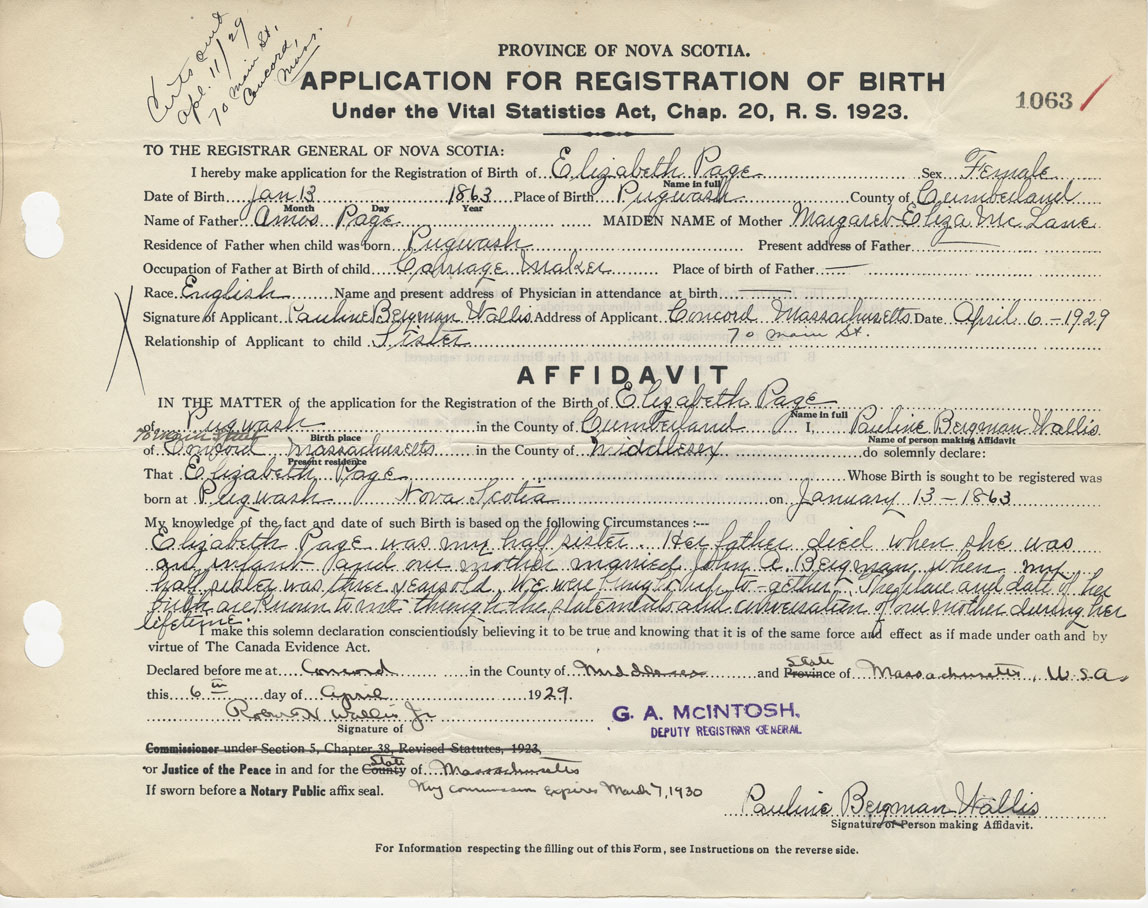 Certs out
Apl. 11/29
70 Main St.
Concord,
Mass.
PROVINCE OF NOVA SCOTIA.
APPLICATION FOR REGISTRATION OF BIRTH
1063
Under the Vital Statistics Act, Chap. 20, R. S. 1923.
TO THE REGISTRAR GENERAL OF NOVA SCOTIA:
I hereby make application for the Registration of Birth of Elizabeth Page Sex Female
Name in full
Date of Birth Jan 13 1863 Place of Birth Pugwash County of Cumberland
Month Day Year
Name of Father Amos Page MAIDEN NAME of Mother Margaret Eliza McLane
Residence of Father when child was born Pugwash Present address of Father
Occupation of Father at Birth of child Carriage Maker Place of birth of Father
Race English Name and present address of Physician in attendance at birth
Signature of Applicant Pauline Bergman Wallis Address of Applicant Concord Massachusetts Date April 6 - 1929
70 Main St.
Relationship of Applicant to child Sister
AFFIDAVIT
IN THE MATTER of the application for the Registration of the Birth of Elizabeth Page
Name in full
of Pugwash in the County of Cumberland I, Pauline Bergman Wallis
Birth place Name of person making Affidavit
70 Main Street
of Concord Massachusetts in the County of Middlesex do solemnly declare:
Present residence
That Elizabeth Page Whose Birth is sought to be registered was
born at Pugwash Nova Scotia on January 13 - 1863
My knowledge of the fact and date of such Birth is based on the following Circumstances :---
Elizabeth Page was my half sister. Her father died when she was
an infant and our mother married John A. Bergman when my
half sister was three years old. We were brought up to-gether. The place and date of her
birth are known to me through the statements and conversation of our mother during her
lifetime.
I make this solemn declaration conscientiously believing it to be true and knowing that it is of the same force and effect as if made under oath and by
virtue of The Canada Evidence Act.
State
Declared before me at Concord in the County of Middlesex and Province of Massachusetts, U.S.A.
this 6th day of April 1929.
Robert N Wallis Jr
Signature of
G. A. McINTOSH,
DEPUTY REGISTRAR GENERAL
Commissioner under Section 5, Chapter 38, Revised Statutes, 1923,
State
or Justice of the Peace in and for the County of Massachusetts
If sworn before a Notary Public affix seal. My commission expires March 7, 1930
Pauline Bergman Wallis
Signature of Person making Affidavit.
For Information respecting the filling out of this Form, see Instructions on the reverse side.